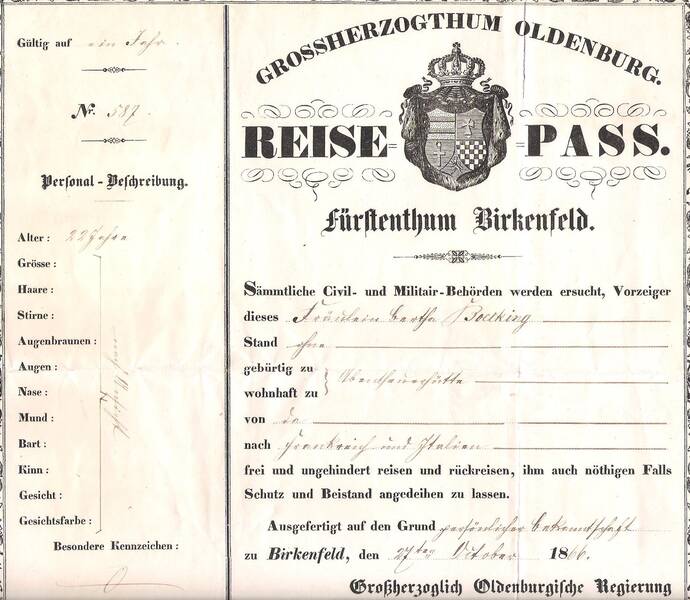 Gültig auf ein Jahr.
Nr. 587
Personal-Beschreibung.
Alter: 22 Jahre
Grösse:
Haare:
Stirne:
Augenbraunen:
Augen:
Nase:
Mund:
Bart:
Kinn:
Gesicht:
Gesichtsfarbe:
Besondere Kennzeichen:
GROSSHERZOGTHUM OLDENBURG.
REISE=PASS.
Fürstenthum Birkenfeld.
Sämmtliche Civil- und Militair-Behörden werden ersucht, Vorzeiger
dieses Fräulein Bertha Boecking
Stand ohne
gebürtig zu
wohnhaft zu } Abentheuerhütte
von da
nach Frankreich und Italien
frei und ungehindert reisen und rückreisen, ihm auch nöthigen Falls
Schutz und Beistand angedeihen zu lassen.
Ausgefertigt auf den Grund persönlicher Bekanntschaft
zu Birkenfeld, den 27ten October 1866.
Großherzoglich Oldenburgische Regierung